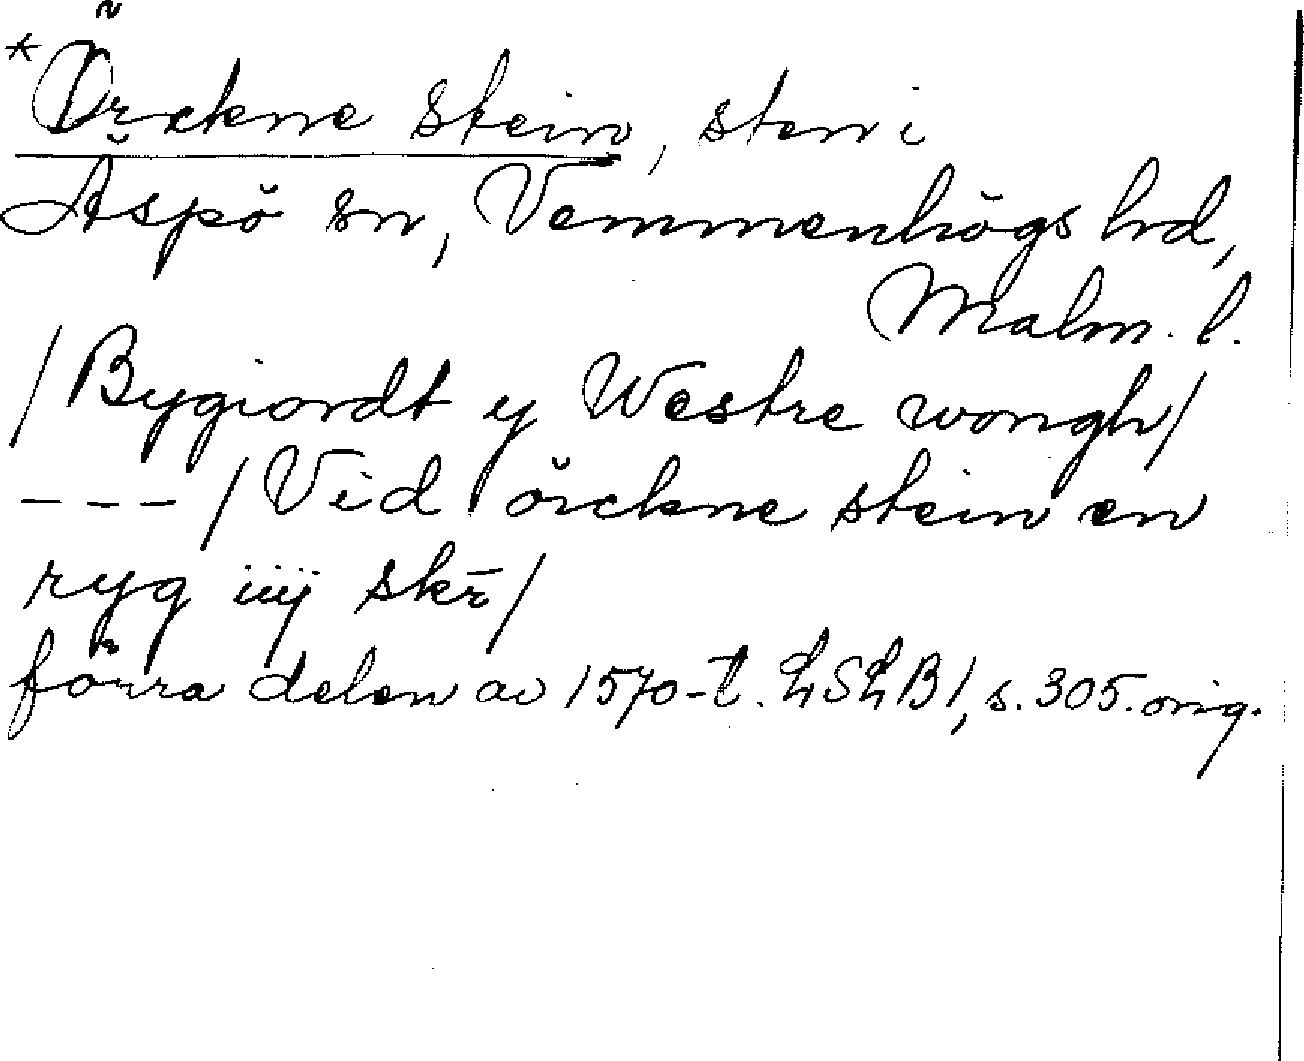 *Örckne stein, sten i
Äspö sn, Vemmenhögs hd,
Malm. l.
/Bygiordt y Westre wongh/
---/Vid örckne stein en
ryg iiij skr̄/
förra delen av 1570-t. LSLB1, s. 305. orig.